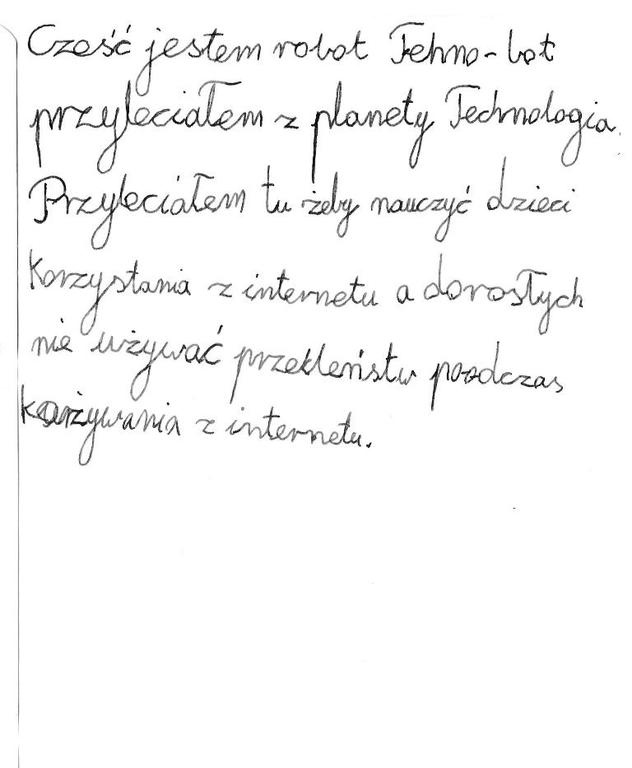 Cześć jestem robot Tehno-bot
przyleciałem z planety Technologia.
Przyleciałem tu żeby nauczyć dzieci
korzystania z internetu a dorosłych
nie używać przekleństw poodczas
z internetu.